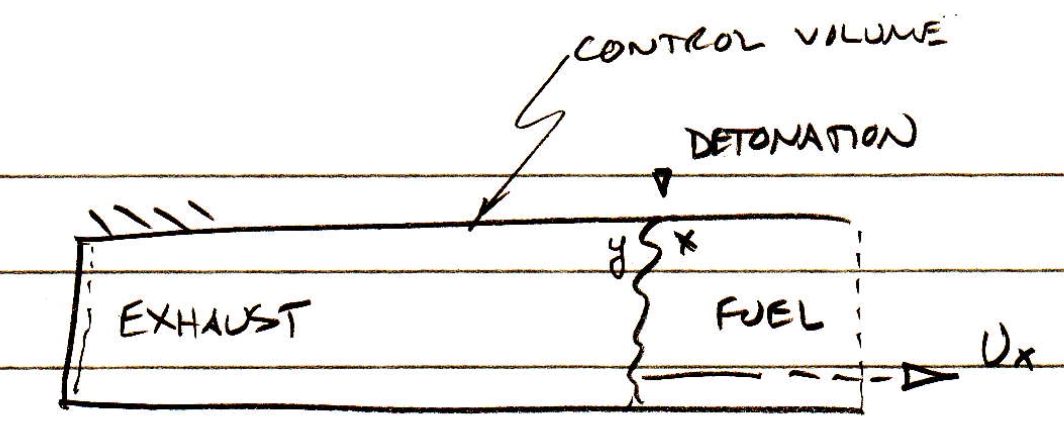 CONTROL VOLUME
DETONATION
y x
EXHAUST
FUEL
Ux